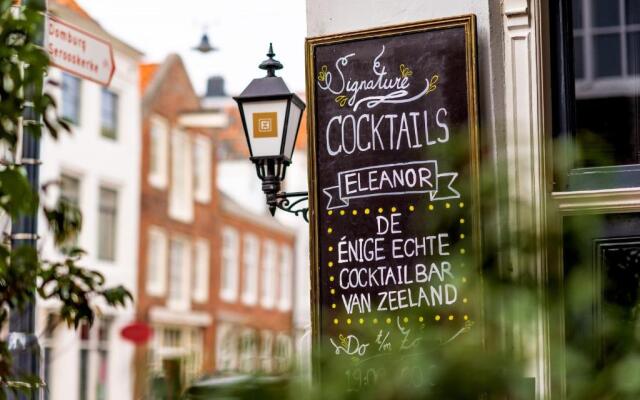 Domburg
Serooskerke
Signature
COCKTAILS
ELEANOR
DE
ÉNIGE ECHTE
COCKTAILBAR
VAN ZEELAND
Do t/m Zo